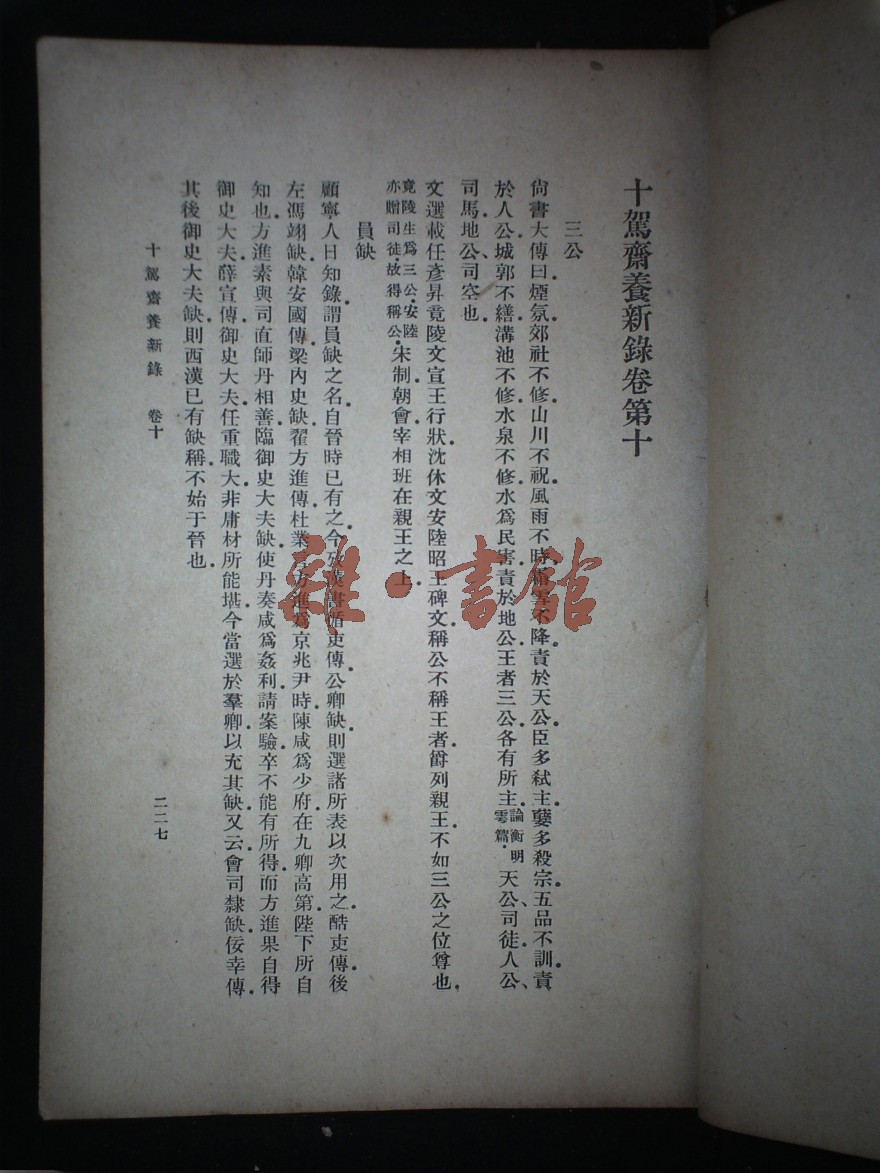 十駕齋養新錄卷第十
三公
尙書大傳曰煙氛郊社不修山川不祝風雨不時霜雪不降責於天公臣多弒主孽多殺宗五品不訓責
於人公城郭不繕溝池不修水泉不修水爲民害責於地公王者三公各有所主論衡明雩篇天公司徒人公、
司馬、地公司空也
文選載任彥昇竟陵文宣王行狀沈休文安陸昭王碑文稱公不稱王者爵列親王不如三公之位尊也
竟陵生爲三公安陸亦贈司徒故得稱公宋制朝會宰相班在親王之上
員缺
顧寧人日知錄謂員缺之名自晉時已有之今攷漢書循吏傳公卿缺則選諸所表以次用之酷吏傳後
左馮翊缺韓安國傳梁內史缺翟方進傳杜業言方進爲京兆尹時陳咸爲少府在九卿高第陛下所自
知也方進素與司直師丹相善臨御史大夫缺使丹奏咸爲姦利請案驗卒不能有所得而方進果自得
御史大夫薛宣傳御史大夫任重職大非庸材所能堪今當選於羣卿以充其缺又云會司隸缺佞幸傳
其後御史大夫缺則西漢已有缺稱不始于晉也
十駕齋養新錄 卷十
二二七
雜·書館